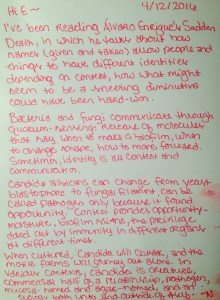 Hi E~ 4/12/2016
I've been reading Álvaro Enrigue's Sudden
Death, in which he talks about how
names (given and taken) allow people and
things to have different identities
depending on context, how what might
seem to be a sneering diminutive
could have been hard-won.
Bacteria and fungi communicate through
quorum-sensing: receive a molecule
that says when to make a biofilm, when
to change shape, how to move forward.
Sometimes, identity is all context and
communication.
Candida albicans can change from yeast
blastospore to fungal filament can be
called pathogen only because it found
opportunity. Context provides opportunity—
moisture, break in
doled out by immunity in different
at different times.
When cultured, Candida will cluster, and the
mobile forms will journey out alone. In
various contexts, Candida is creature,
commensal, half of a relationship, pathogen,